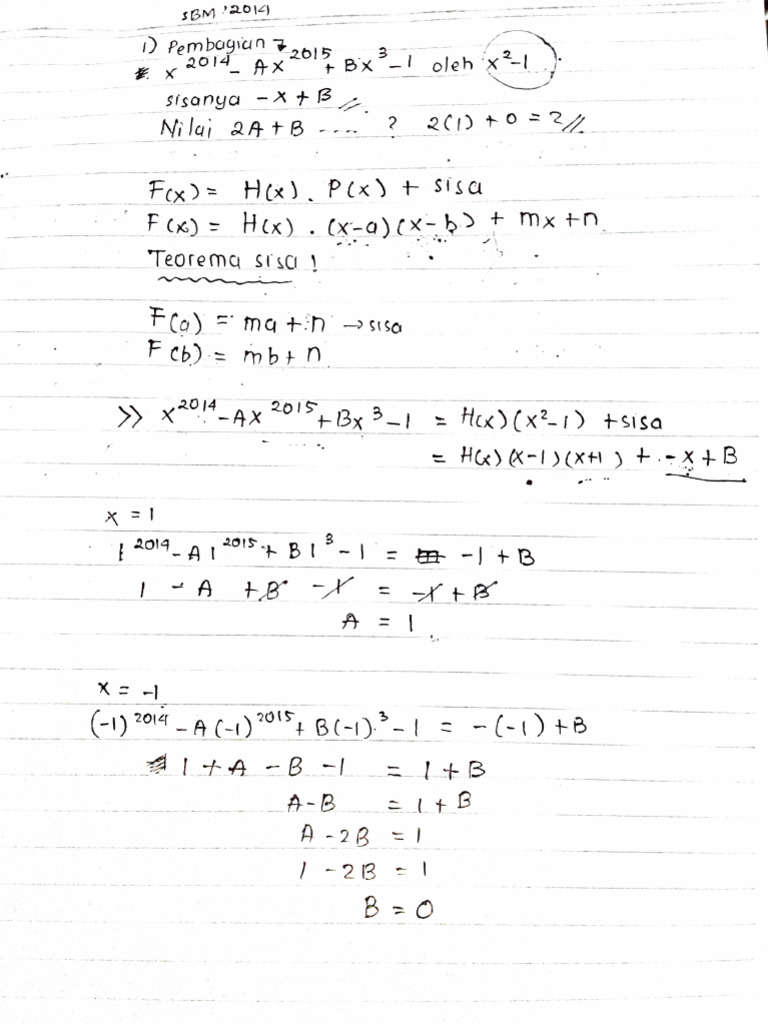 SBM '2014
1) Pembagian
x^2014 - Ax^2015 + Bx^3 - 1 oleh x^2-1
sisanya -x + B //
Nilai 2A + B .... ? 2(1) + 0 = 2 //
F(x) = H(x) . P(x) + sisa
F(x) = H(x) . (x-a)(x-b) + mx + n
Teorema sisa !
F(a) = ma + n → sisa
F(b) = mb + n
>> x^2014 - Ax^2015 + Bx^3 - 1 = H(x)(x^2-1) + sisa
= H(x)(x-1)(x+1) + -x + B
x = 1
1^2014 - A1^2015 + B1^3 - 1 = -1 + B
1 - A + B - 1 = -1 + B
A = 1
x = -1
(-1)^2014 - A(-1)^2015 + B(-1)^3 - 1 = -(-1) + B
1 + A - B - 1 = 1 + B
A - B = 1 + B
A - 2B = 1
1 - 2B = 1
B = 0